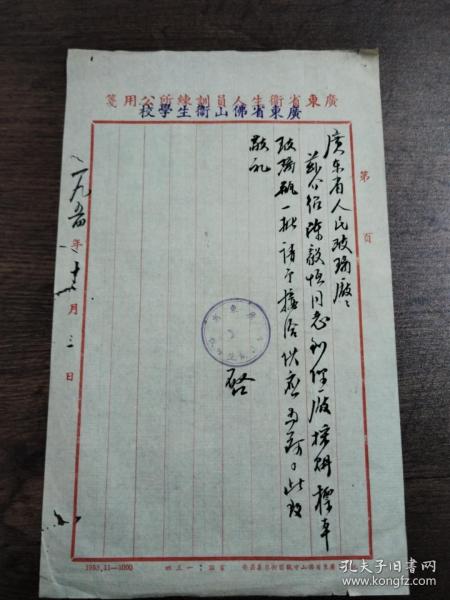 廣東省衛生人員訓練所公用箋
廣東省佛山衛生學校
第 頁
廣东省人民玻璃廠：
兹介绍陈毅恒同志到你厰採購標本
玻璃瓶一批請予接洽供应為荷。此致
敬礼
啓
一九五四年十二月三日
1953.11—5000
孔夫子旧书网